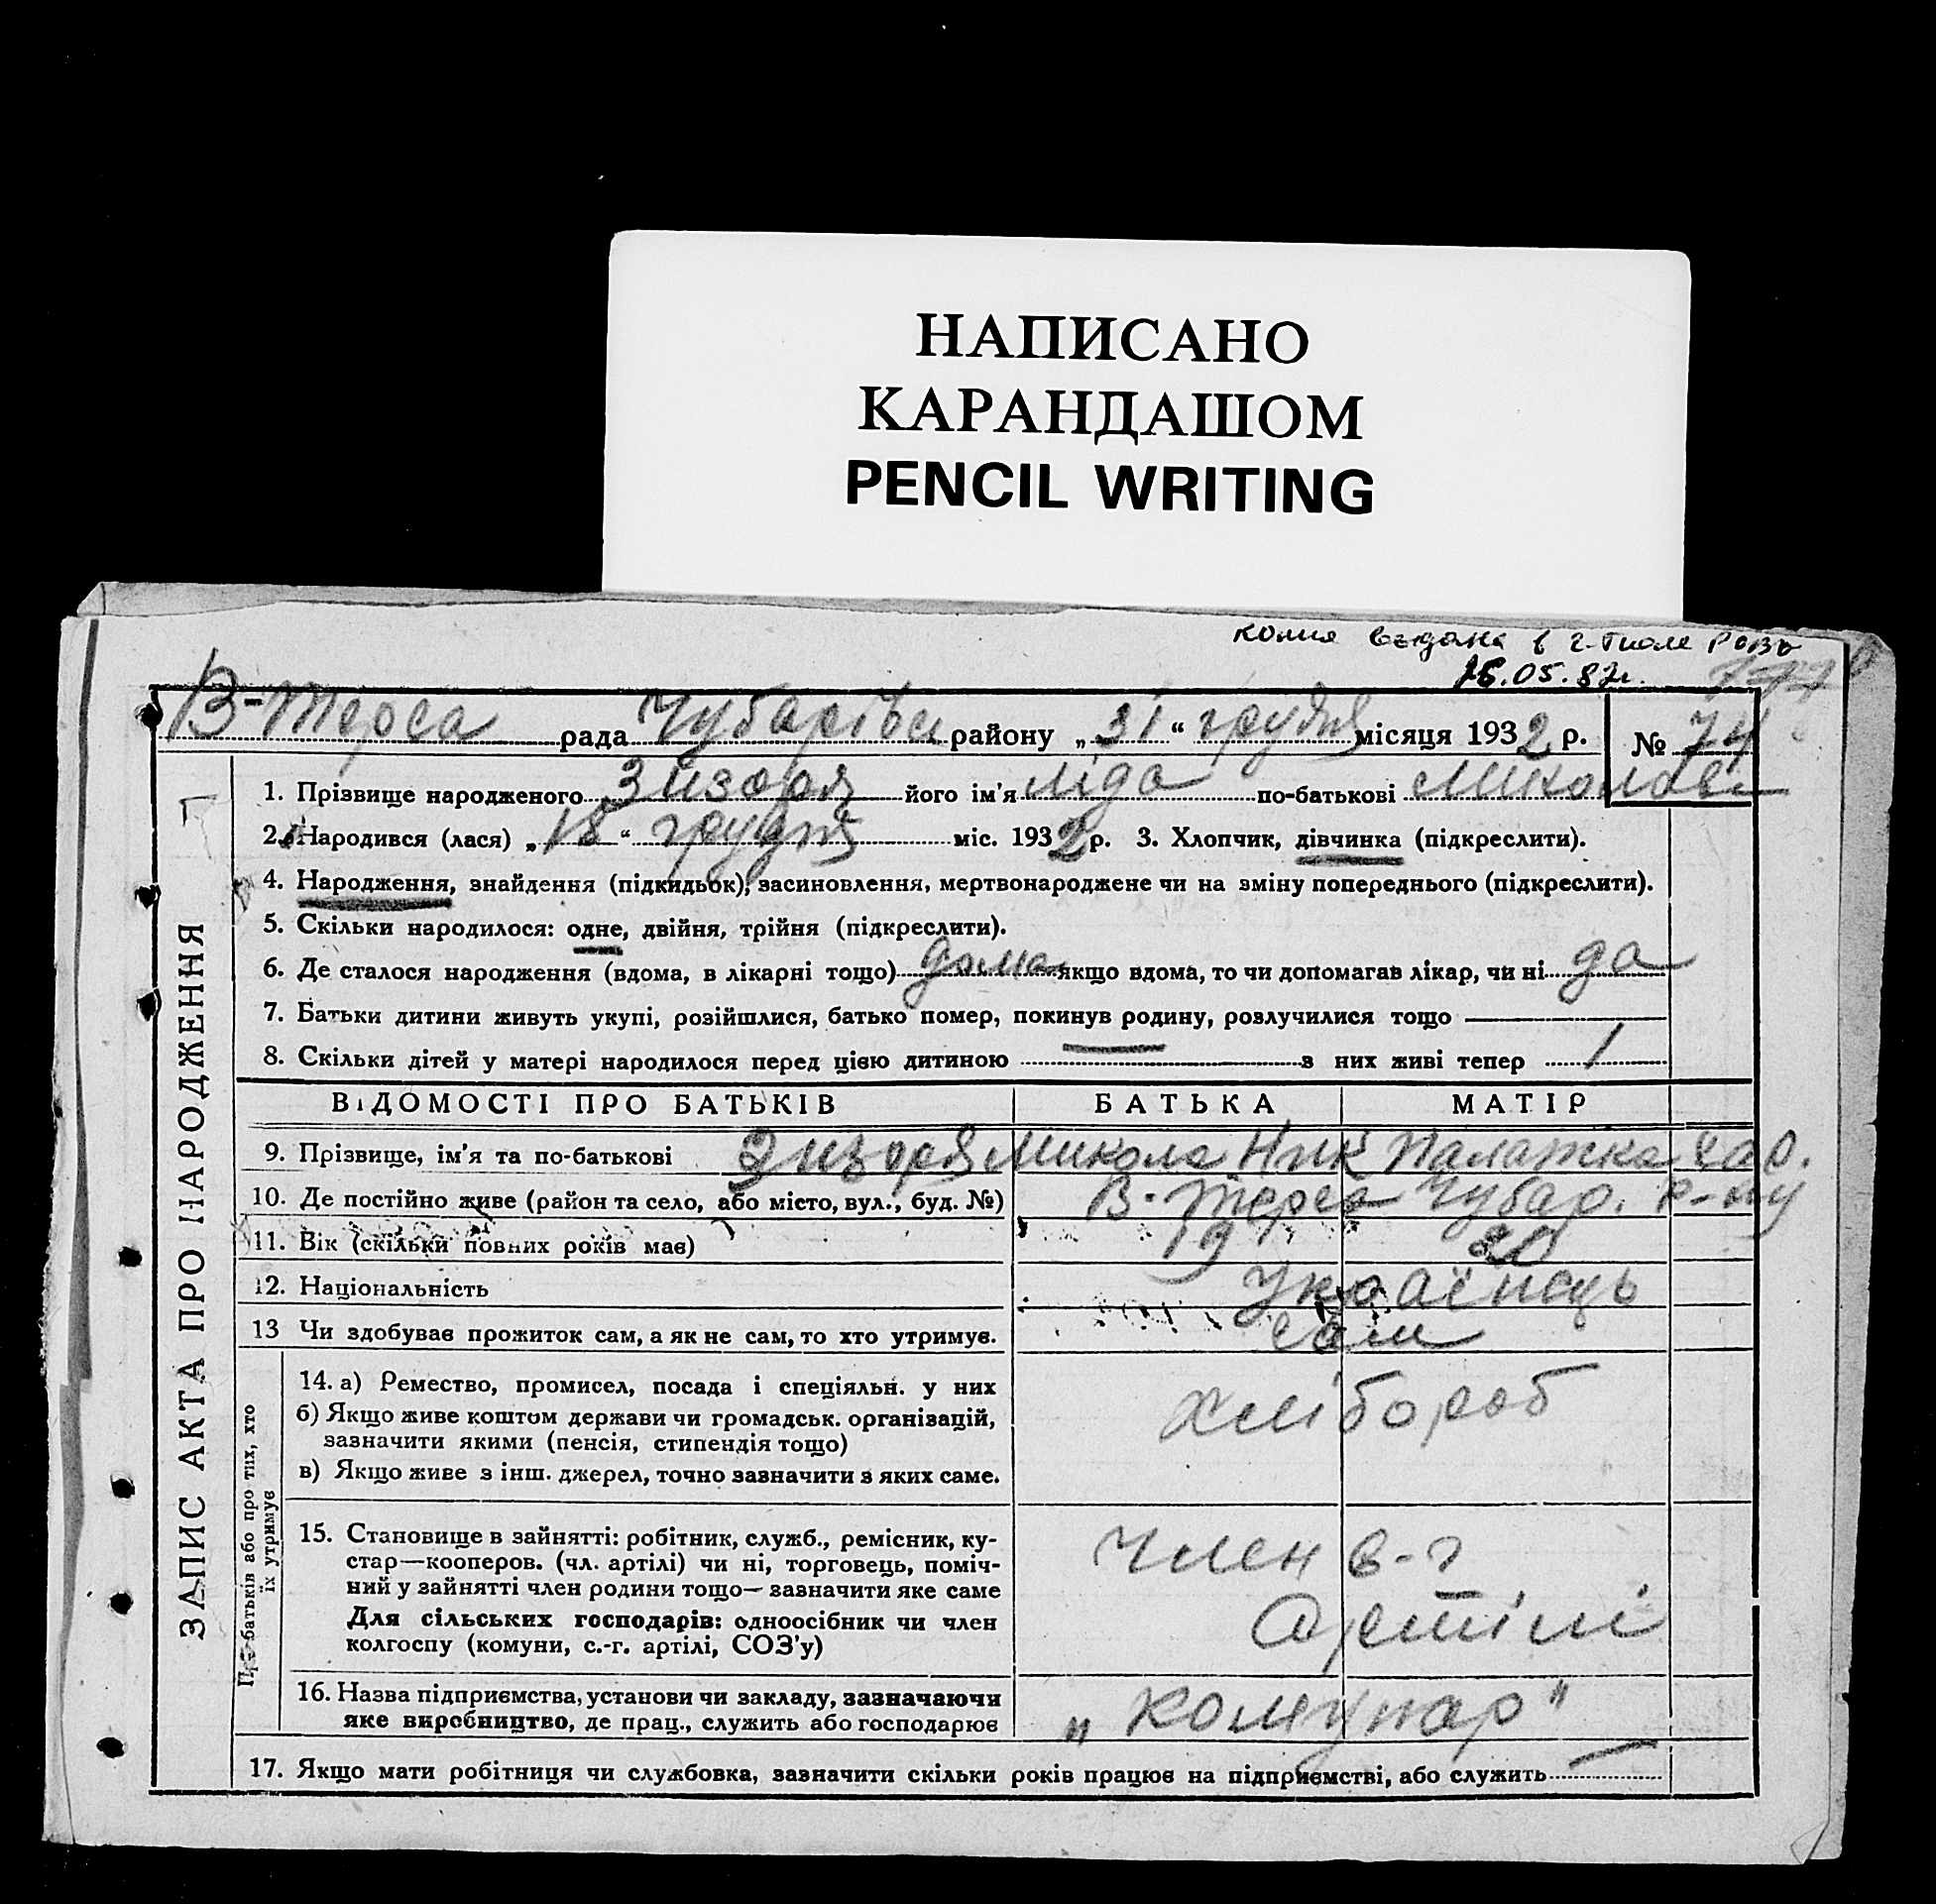 НАПИСАНО
КАРАНДАШОМ
PENCIL WRITING
копия выдана в г.
15.05.87г.
В-Терса рада Чубарівсь району „31“ грудня місяця 1932 р. № 74
ЗАПИС АКТА ПРО НАРОДЖЕННЯ
1. Прізвище народженого Знизоря його ім'я Ліда по-батькові Миколаєв
2. Народився (лася) „18“ грудня міс. 1932 р. 3. Хлопчик, дівчинка (підкреслити).
4. Народження, знайдення (підкидьок), засиновлення, мертвонароджене чи на зміну попереднього (підкреслити).
5. Скільки народилося: одне, двійня, трійня (підкреслити).
6. Де сталося народження (вдома, в лікарні тощо) дома якщо вдома, то чи допомагав лікар, чи ні да
7. Батьки дитини живуть укупі, розійшлися, батько помер, покинув родину, розлучилися тощо
8. Скільки дітей у матері народилося перед цією дитиною з них живі тепер 1
ВІДОМОСТІ ПРО БАТЬКІВ БАТЬКА МАТІР
9. Прізвище, ім'я та по-батькові Микола Ник Палажка
10. Де постійно живе (район та село, або місто, вул., буд. №) В-Терса Чубар. р-ну
11. Вік (скільки повних років має) 19 20
12. Національність Українець
13 Чи здобував прожиток сам, а як не сам, то хто утримує. сам
Про батьків або про тих, хто їх утримує
14. а) Ремество, промисел, посада і спеціяльн. у них хлібороб
б) Якщо живе коштом держави чи громадськ. організацій,
зазначити якими (пенсія, стипендія тощо)
в) Якщо живе з інш. джерел, точно зазначити з яких саме.
15. Становище в зайнятті: робітник, служб., ремісник, ку-
стар—кооперов. (чл. артілі) чи ні, торговець, поміч- Член с-г
ний у зайнятті член родини тощо—зазначити яке саме
Для сільських господарів: одноосібник чи член артілі
колгоспу (комуни, с.-г. артілі, СОЗ'у)
16. Назва підприємства, установи чи закладу, зазначаючи „Комунар“
яке виробництво, де прац., служить або господарює
17. Якщо мати робітниця чи службовка, зазначити скільки років працює на підприємстві, або служить